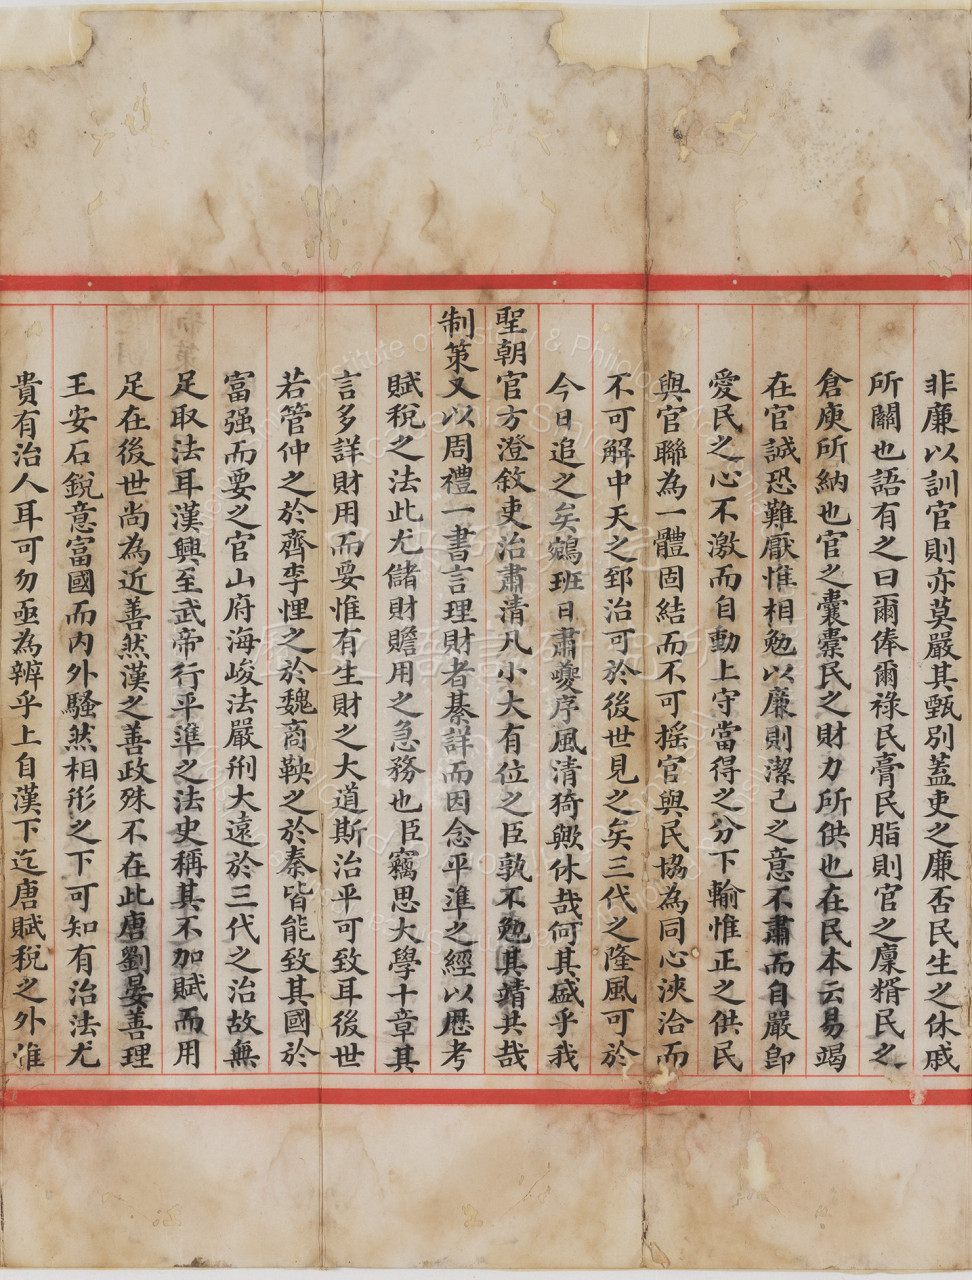 非廉以訓官則亦莫嚴其甄別蓋吏之廉否民生之休戚
所關也語有之曰爾俸爾祿民膏民脂則官之廩糈民之
倉庾所納也官之囊橐民之財力所供也在民本云易竭
在官誠恐難厭惟相勉以廉則潔己之意不肅而自嚴卽
愛民之心不激而自動上守當得之分下輸惟正之供民
與官聯為一體固結而不可摇官與民協為同心浹洽而
不可解中天之郅治可於後世見之矣三代之隆風可於
今日追之矣鵷班日肅夔序風清猗歟休哉何其盛乎我
聖朝官方澄敘吏治肅清凡小大有位之臣孰不勉其靖共哉
制策又以周禮一書言理財者綦詳而因念平準之經以厯考
賦稅之法此尤儲財贍用之急務也臣竊思大學十章其
言多詳財用而要惟有生財之大道斯治平可致耳後世
若管仲之於齊李悝之於魏商鞅之於秦皆能致其國於
富强而要之官山府海峻法嚴刑大遠於三代之治故無
足取法耳漢興至武帝行平準之法史稱其不加賦而用
足在後世尚為近善然漢之善政殊不在此唐劉晏善理
王安石銳意富國而内外騷然相形之下可知有治法尤
貴有治人耳可勿亟為辨乎上自漢下迄唐賦稅之外惟